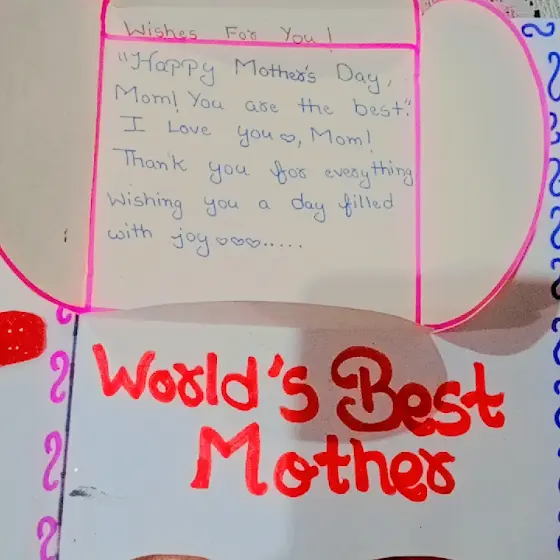 Wishes For You!
"Happy Mother's Day,
Mom! You are the best."
I Love you ♡, Mom!
Thank you for everything
Wishing you a day filled
with joy ♡♡♡.....
World's Best
Mother